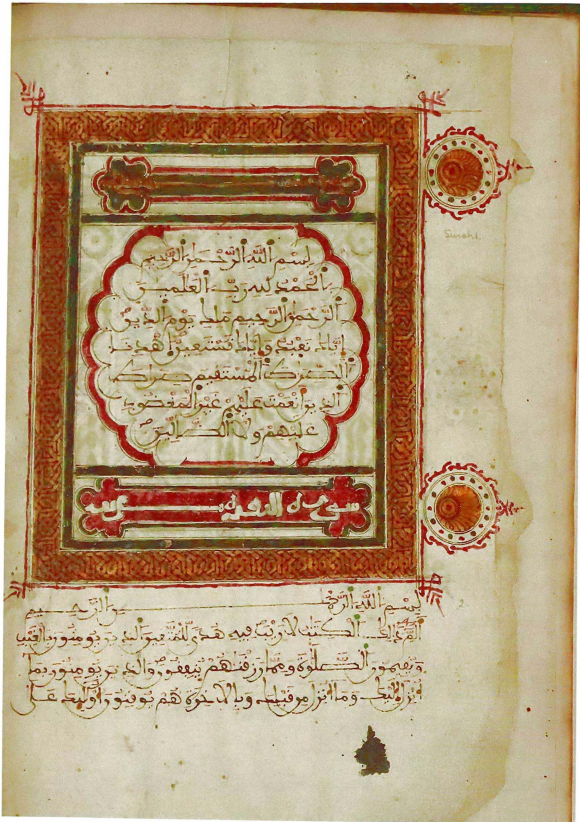 بسم الله الرحمن الرحيم
الحمد لله رب العلمين
الرحمن الرحيم ملك يوم الدين
إياك نعبد وإياك نستعين اهدنا
الصراط المستقيم صراط
الذين أنعمت عليهم غير المغضوب
عليهم ولا الضالين
Surah 1.
سورة البقرة
2.
بسم الله الرحمن الرحيم
الم ذلك الكتب لا ريب فيه هدى للمتقين الذين يومنون بالغيب
ويقيمون الصلوة ومما رزقنهم ينفقون والذين يومنون بما
أنزل إليك وما أنزل من قبلك وبالاخرة هم يوقنون أوليك على